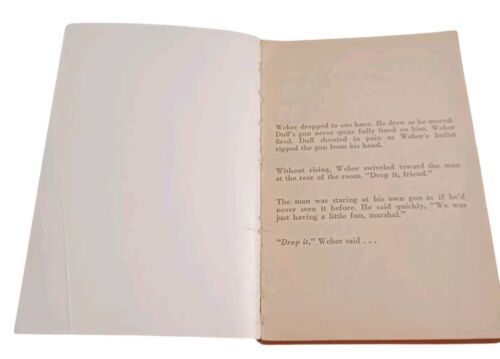 Weber dropped to one knee. He drew as he moved.
Duff's gun never quite fully lined on him. Weber
fired. Duff shouted in pain as Weber's bullet
ripped the gun from his hand.
Without rising, Weber swiveled toward the man
at the rear of the room. "Drop it, friend."
The man was staring at his own gun as if he'd
never seen it before. He said quickly, "We was
just having a little fun, marshal."
"Drop it," Weber said . . .